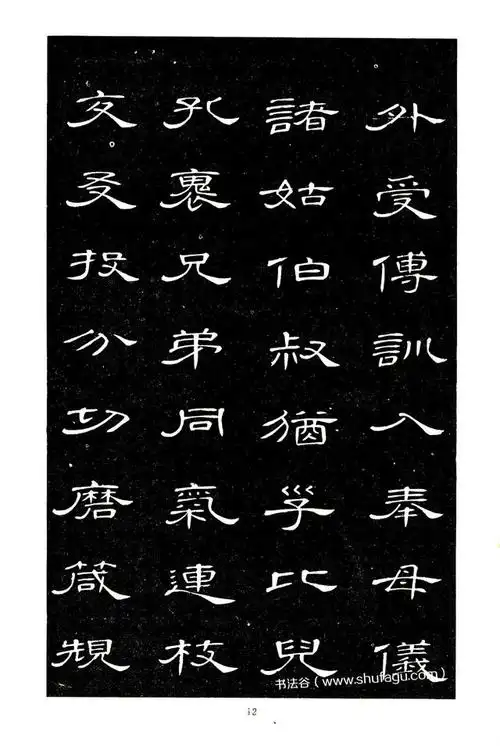 外受傅訓入奉母儀
諸姑伯叔猶子比兒
孔褱兄弟同氣連枝
交友投分切磨箴規
书法谷（www.shufagu.com）
12